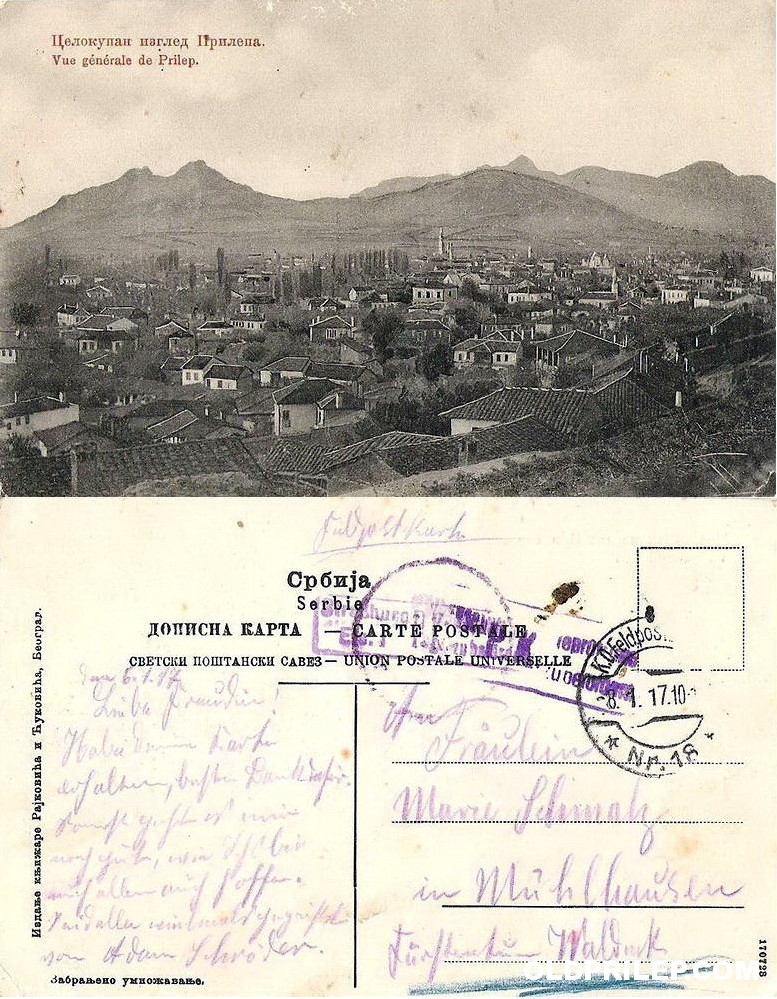 Целокупан изглед Прилепа.
Vue générale de Prilep.
Feldpostkarte
Србија
Serbie
ДОПИСНА КАРТА — CARTE POSTALE
СВЕТСКИ ПОШТАНСКИ САВЕЗ — UNION POSTALE UNIVERSELLE
K.D. Feldpost
8. 1. 17. 10-
* Nr. 18 *
den 6.1.17
Liebe Freundin!
Habe deine Karte
erhalten, besten Dank dafür.
Sonst geht es mir
noch gut, wie ich bei
euch allen auch hoffe.
Seid alle vielmals gegrüßt
von Adam Schröder.
An
Fräulein
Marie Schmalz
in Mühlhausen
Fürstentum Waldeck
Издање књижаре Рајковића и Ћуковића, Београд.
Забрањено умножавање.
170728
OLDPRILEP.COM